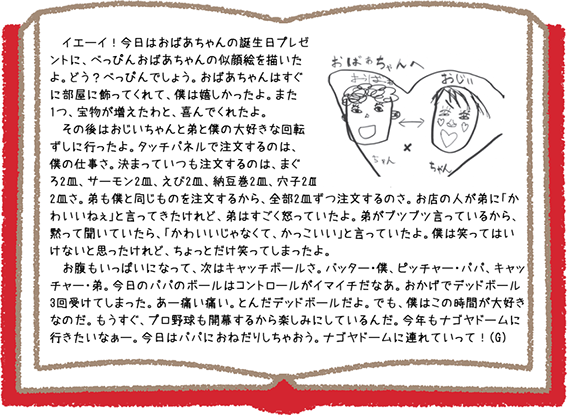 イエーイ！今日はおばあちゃんの誕生日プレゼ
ントに、べっぴんおばあちゃんの似顔絵を描いた
よ。どう？べっぴんでしょう。おばあちゃんはすぐ
に部屋に飾ってくれて、僕は嬉しかったよ。また
1つ、宝物が増えたわと、喜んでくれたよ。
その後はおじいちゃんと弟と僕の大好きな回転
ずしに行ったよ。タッチパネルで注文するのは、
僕の仕事さ。決まっていつも注文するのは、まぐ
ろ2皿、サーモン2皿、えび2皿、納豆巻2皿、穴子2皿
2皿さ。弟も僕と同じものを注文するから、全部2皿ずつ注文するのさ。お店の人が弟に「か
わいいねぇ」と言ってきたけれど、弟はすごく怒っていたよ。弟がブツブツ言っているから、
黙って聞いていたら、「かわいいじゃなくて、かっこいい」と言っていたよ。僕は笑ってはい
けないと思ったけれど、ちょっとだけ笑ってしまったよ。
お腹もいっぱいになって、次はキャッチボールさ。バッター・僕、ピッチャー・パパ、キャッ
チャー・弟。今日のパパのボールはコントロールがイマイチだなあ。おかげでデッドボール
3回受けてしまった。あー痛い痛い。とんだデッドボールだよ。でも、僕はこの時間が大好き
なのだ。もうすぐ、プロ野球も開幕するから楽しみにしているんだ。今年もナゴヤドームに
行きたいなぁー。今日はパパにおねだりしちゃおう。ナゴヤドームに連れていって！(G)
おばあちゃんへ
おじい
ちゃん
×
ちゃん